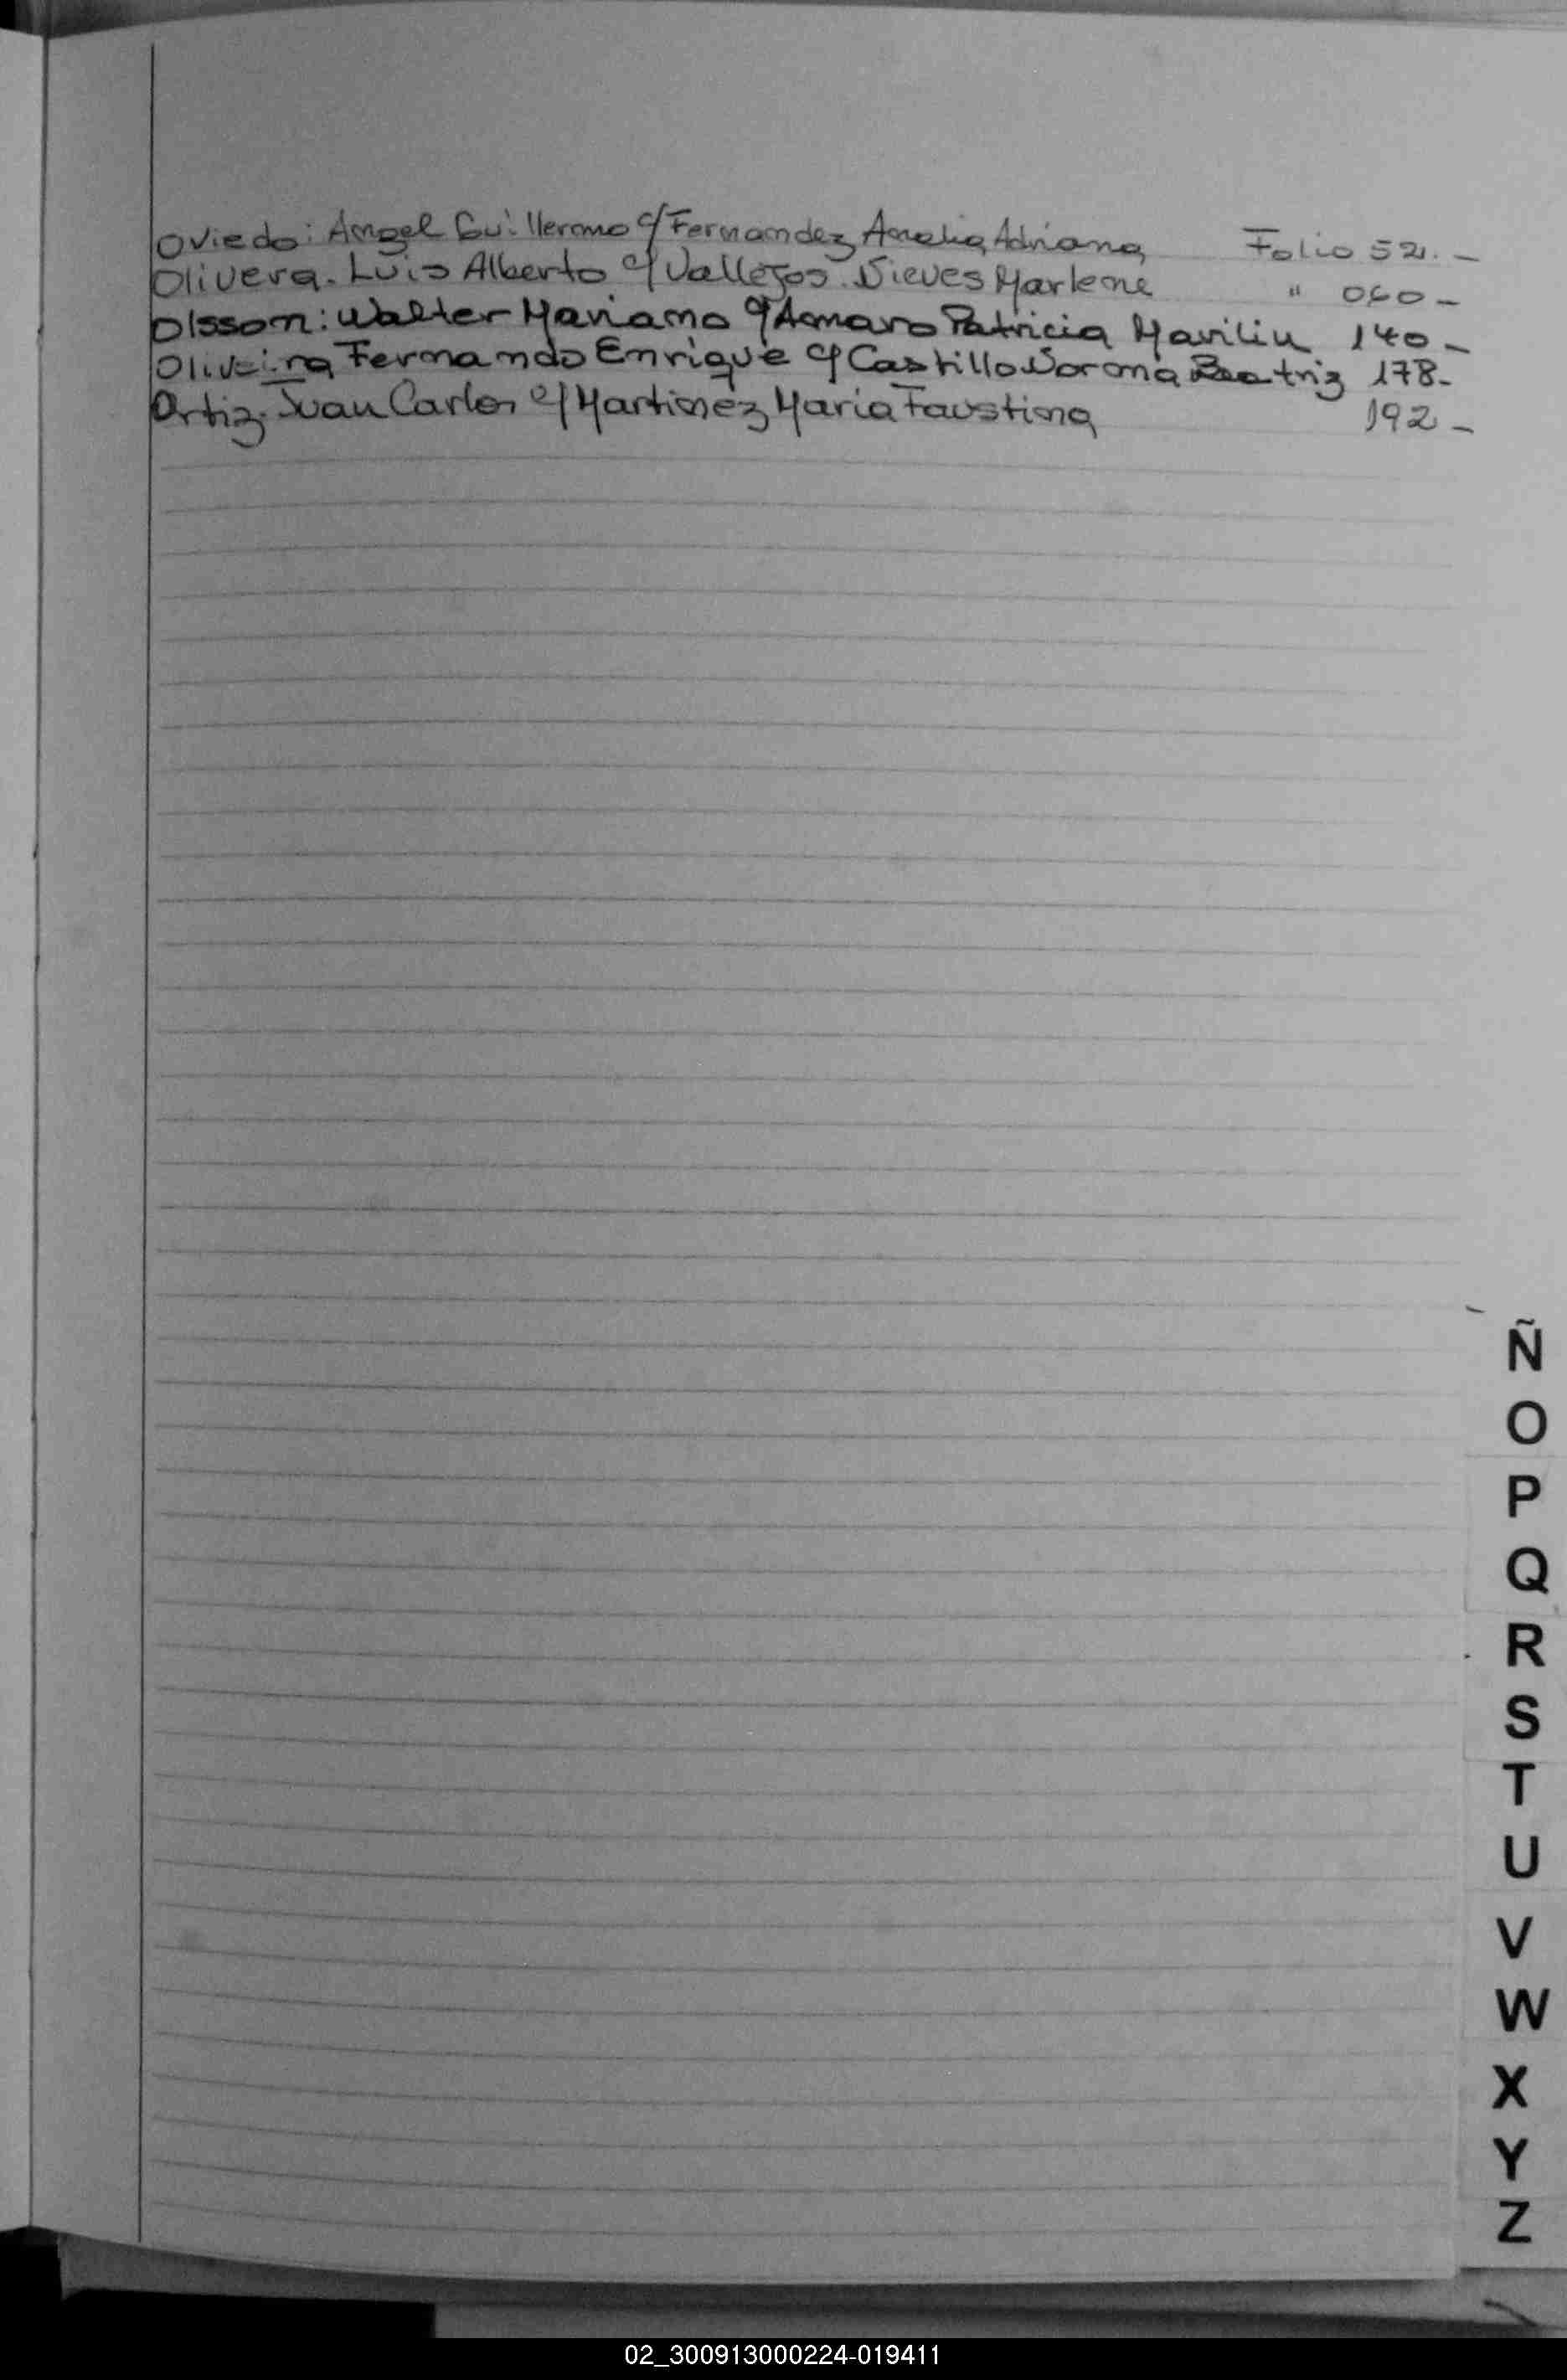 Oviedo: Angel Guillermo c/ Fernandez Amelia Adriana Folio 52. -
Olivera. Luis Alberto c/ Vallejos. Nieves Marlene " 060 -
Olsson: Walter Mariano c/ Amaro Patricia Mariliu 140 -
Oliveira Fernando Enrique c/ Castillo Norma Beatriz 178. -
Ortiz. Juan Carlos c/ Martinez Maria Faustina 192 -
Ñ
O
P
Q
R
S
T
U
V
W
X
Y
Z
02_300913000224-019411